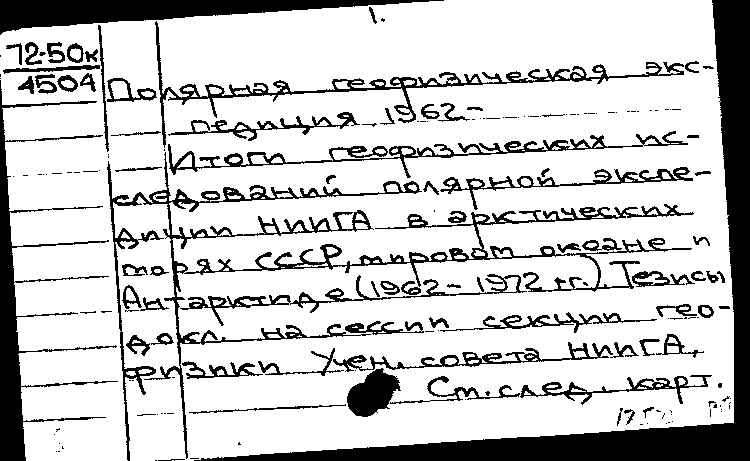 1.
72-50к
4504
Полярная геофизическая экс-
педиция. 1962-
Итоги геофизических ис-
следований полярной экспе-
диции НИИГА в арктических
морях СССР, мировом океане и
Антарктиде (1962-1972 гг.). Тезисы
докл. на сессии секции гео-
физики Учен. совета НИИГА,
См. след. карт.